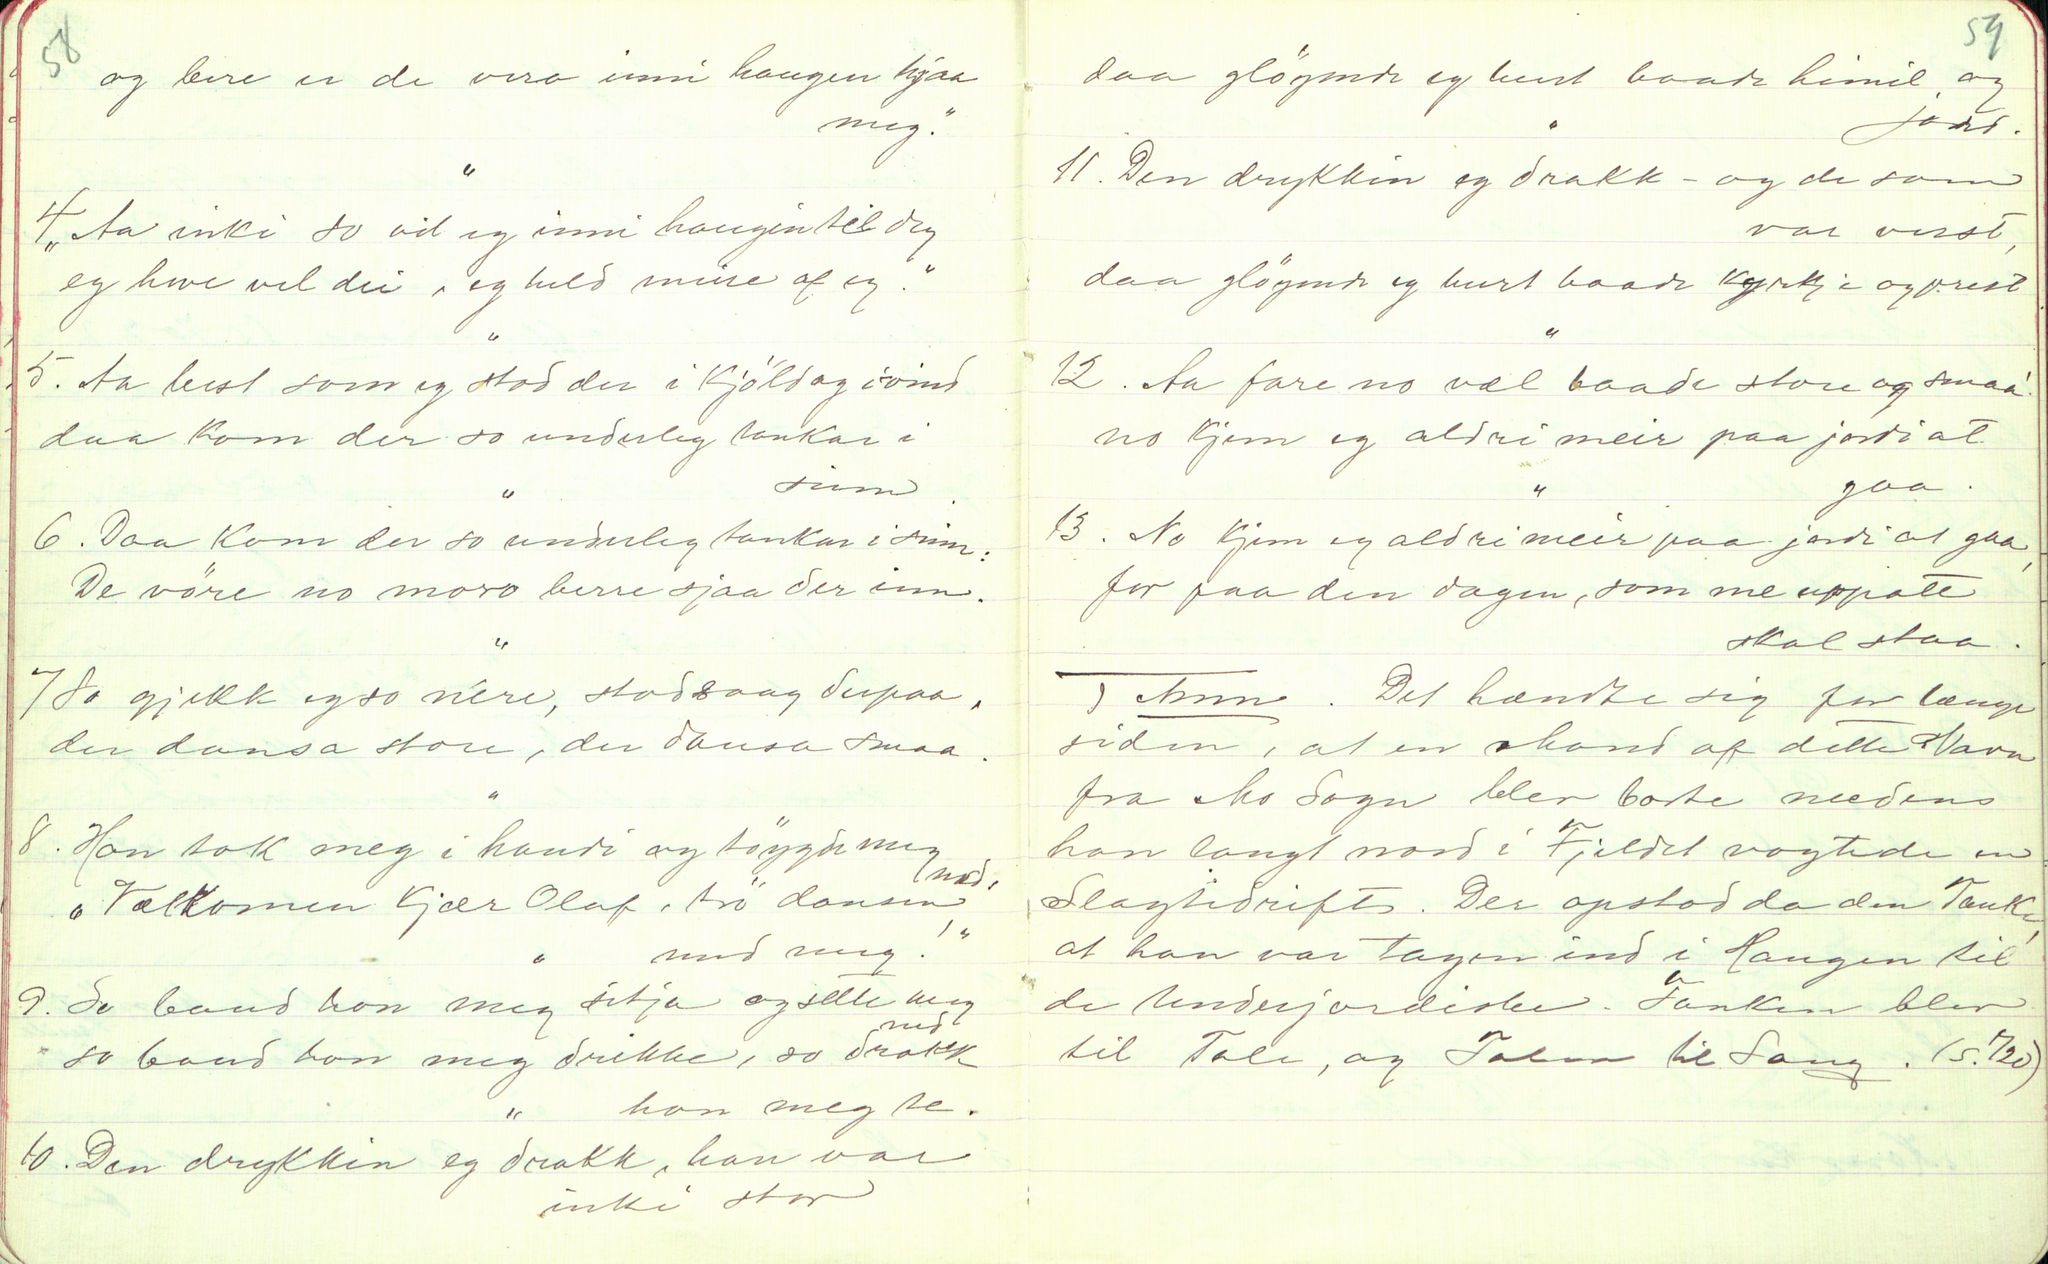 58
og bere er de vera inni haugen hjaa
meg."
"
4. "Aa inki so vil eg inni haugin til deg
eg hove vel dei, eg held meire af eg."
"
5. Aa best som eg stod der i kjöld og i vind
daa kom der so underleg tankar i
sinn.
"
6. Daa kom der so underleg tankar i sinn:
De vöre no moro berre sjaa der inn.
"
7 So gjekk eg so nére, stod saag derpaa,
der dansa store, der dansa smaa.
"
8. Han tok meg i handi og töygde meg
ned,
"Vælkomen kjær Olaf, trö dansen
med meg!"
"
9. So baud hon meg sitja og sette meg
ned
so baud hon meg drikke, so drakk
hon meg te.
"
10. Den drykkin eg drakk, han var
inki stor
59
daa glöymde eg burt baade himil og
jord.
"
11. Den drykkin eg drakk – og de som
var verst,
daa glöymde eg burt baade kyrkje og prest
"
12. Aa fare no væl baade store og smaa!
no kjem eg aldri meir paa jordi at
gaa.
"
13. No kjem eg aldri meir paa jordi at gaa,
for paa den dagen, som me uppatt
skal staa.
Anm. Det hændte sig for længe
siden, at en Mand af dette Navn
fra Mo Sogn blev borte medens
han langt nord i Fjeldet vogtede en
Slagtedrift. Der opstod da den Tanke,
at han var tagen ind i Haugen til
de Underjordiske. Tanken blev
til Tale, og Talen til Sang. (S. 720)